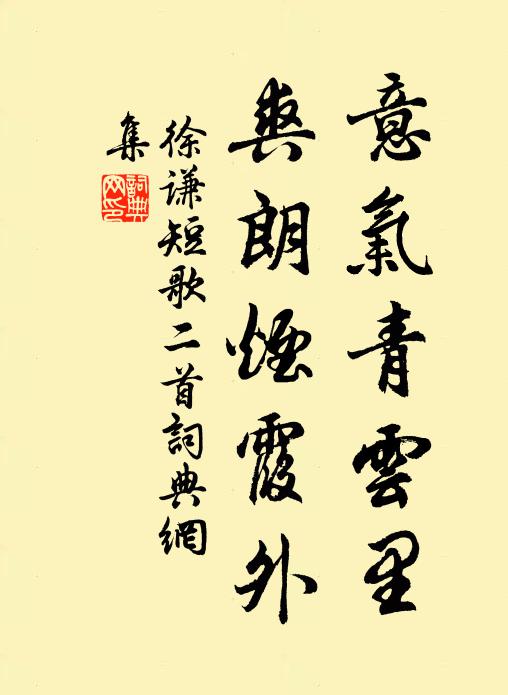 意氣青雲里
爽朗煙霞外
徐谦短歌二首詞典網
集
詞典
网印